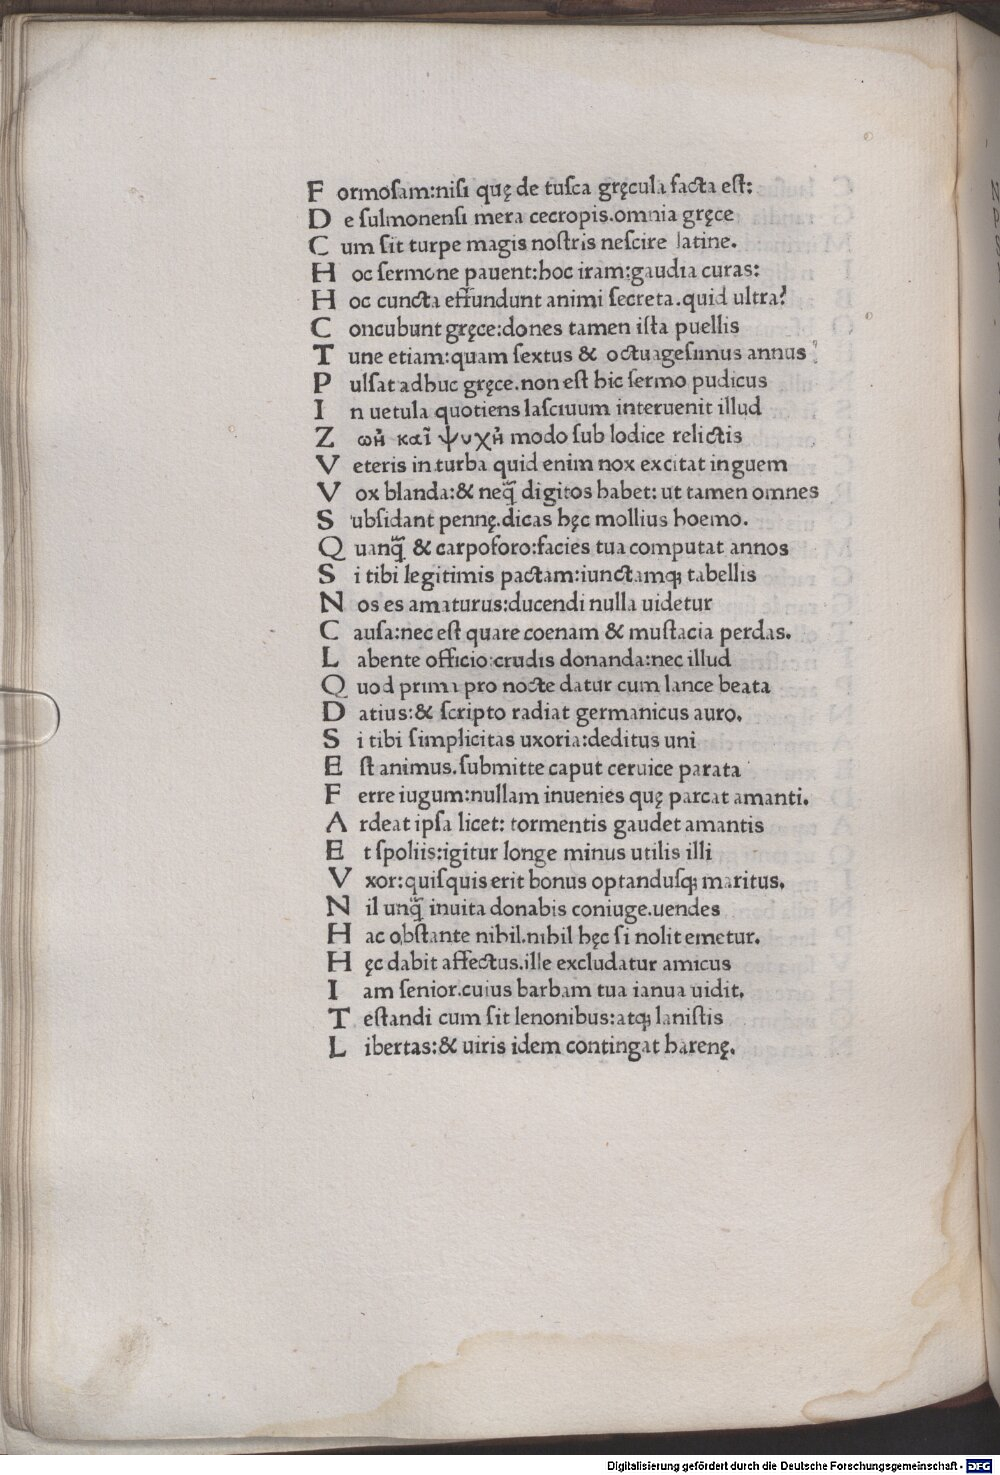 F ormosam:nisi quę de tusca gręcula facta est:
D e sulmonensi mera cecropis.omnia gręce
C um sit turpe magis nostris nescire latine.
H oc sermone pauent:hoc iram:gaudia curas:
H oc cuncta effundunt animi secreta.quid ultra?
C oncubunt gręce:dones tamen ista puellis
T une etiam:quam sextus & octuagesimus annus
P ulsat adhuc gręce.non est hic sermo pudicus
I n uetula quotiens lasciuum interuenit illud
Z ωὴ καὶ ψυχὴ modo sub lodice relictis
V eteris in turba quid enim nox excitat inguem
V ox blanda:& neq̄ digitos habet: ut tamen omnes
S ubsidant pennę.dicas hęc mollius hoemo.
Q uanq̄ & carpoforo:facies tua computat annos
S i tibi legitimis pactam:iunctamq; tabellis
N os es amaturus:ducendi nulla uidetur
C ausa:nec est quare coenam & mustacia perdas.
L abente officio:crudis donanda:nec illud
Q uod prima pro nocte datur cum lance beata
D atius:& scripto radiat germanicus auro.
S i tibi simplicitas uxoria:deditus uni
E st animus.submitte caput ceruice parata
F erre iugum:nullam inuenies quę parcat amanti.
A rdeat ipsa licet: tormentis gaudet amantis
E t spoliis:igitur longe minus utilis illi
V xor:quisquis erit bonus optandusq; maritus.
N il unq̄ inuita donabis coniuge.uendes
H ac obstante nihil.nihil hęc si nolit emetur.
H ęc dabit affectus.ille excludatur amicus
I am senior.cuius barbam tua ianua uidit.
T estandi cum sit lenonibus:atq; lanistis
L ibertas:& uiris idem contingat harenę.
Digitalisierung gefördert durch die Deutsche Forschungsgemeinschaft - DFG